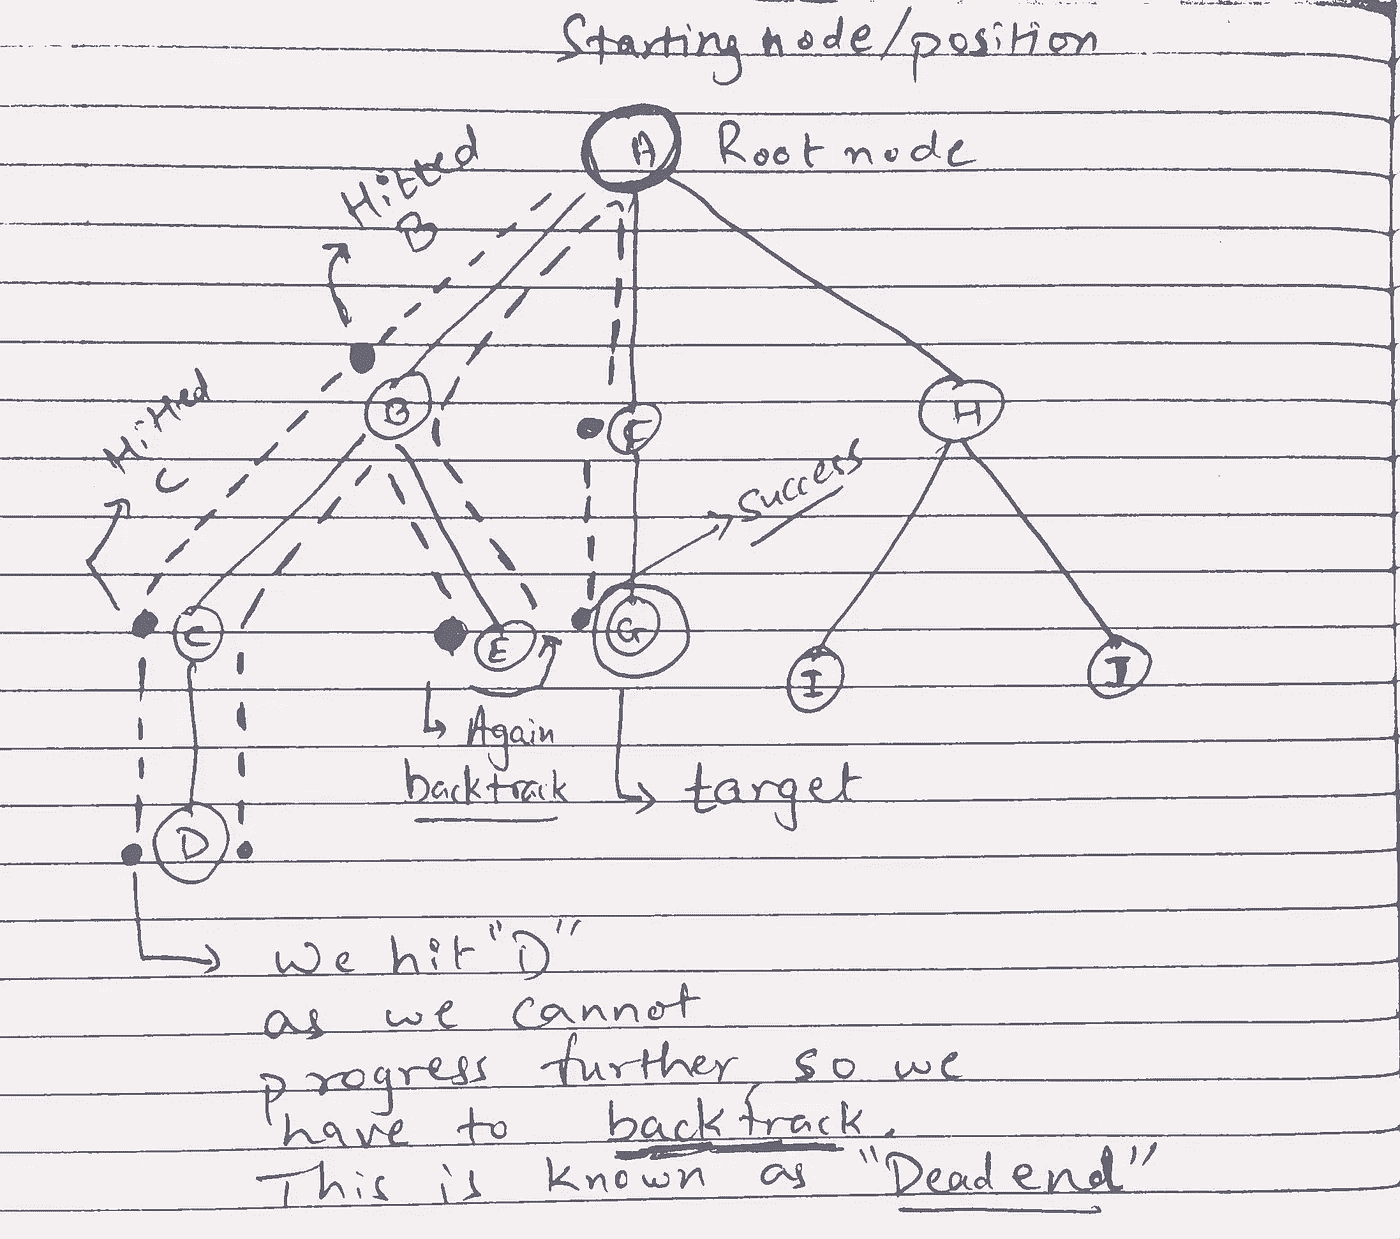 Starting node/position
A Root node
Hitted
B
B
Hitted
C
F
H
Success
C
E
G
I
J
Again
backtrack
target
D
We hit "D"
as we cannot
progress further, so we
have to backtrack.
This is known as "Dead end"